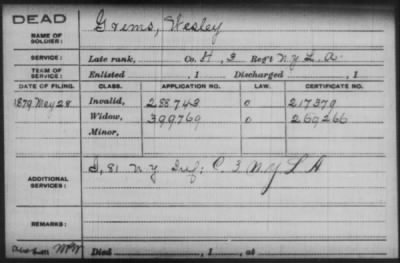 DEAD
NAME OF SOLDIER: Grems, Wesley
SERVICE: Late rank, Co. H, 3 Reg't N.Y.L.A.
TERM OF SERVICE: Enlisted , 1 Discharged , 1
DATE OF FILING. CLASS. APPLICATION NO. LAW. CERTIFICATE NO.
1879 May 28 Invalid, 288743 o 217379
Widow, 399769 o 269266
Minor,
ADDITIONAL SERVICES: I, 81 N.Y. Inf; C. 3 N.Y. L A
REMARKS:
Died , 1 , at